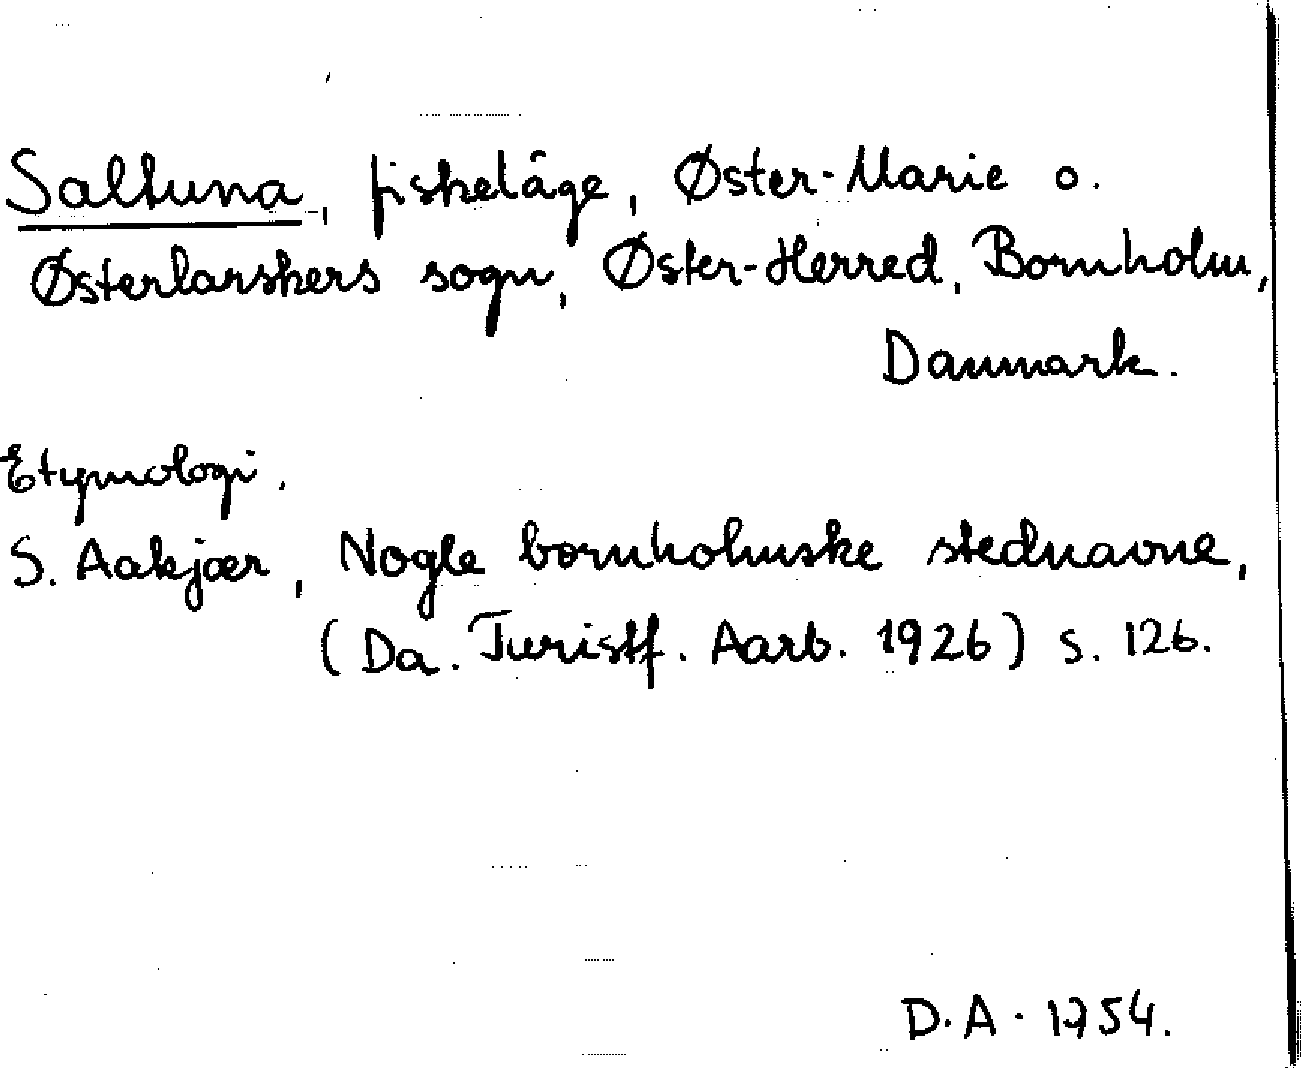 Saltuna, fiskeläge, Øster-Marie o.
Østerlarskers sogn, Øster-Herred, Bornholm,
Danmark.
Etymologi.
S. Aakjær, Nogle bornholmske stednavne,
(Da. Turistf. Aarb. 1926) s. 126.
D.A. 1754.